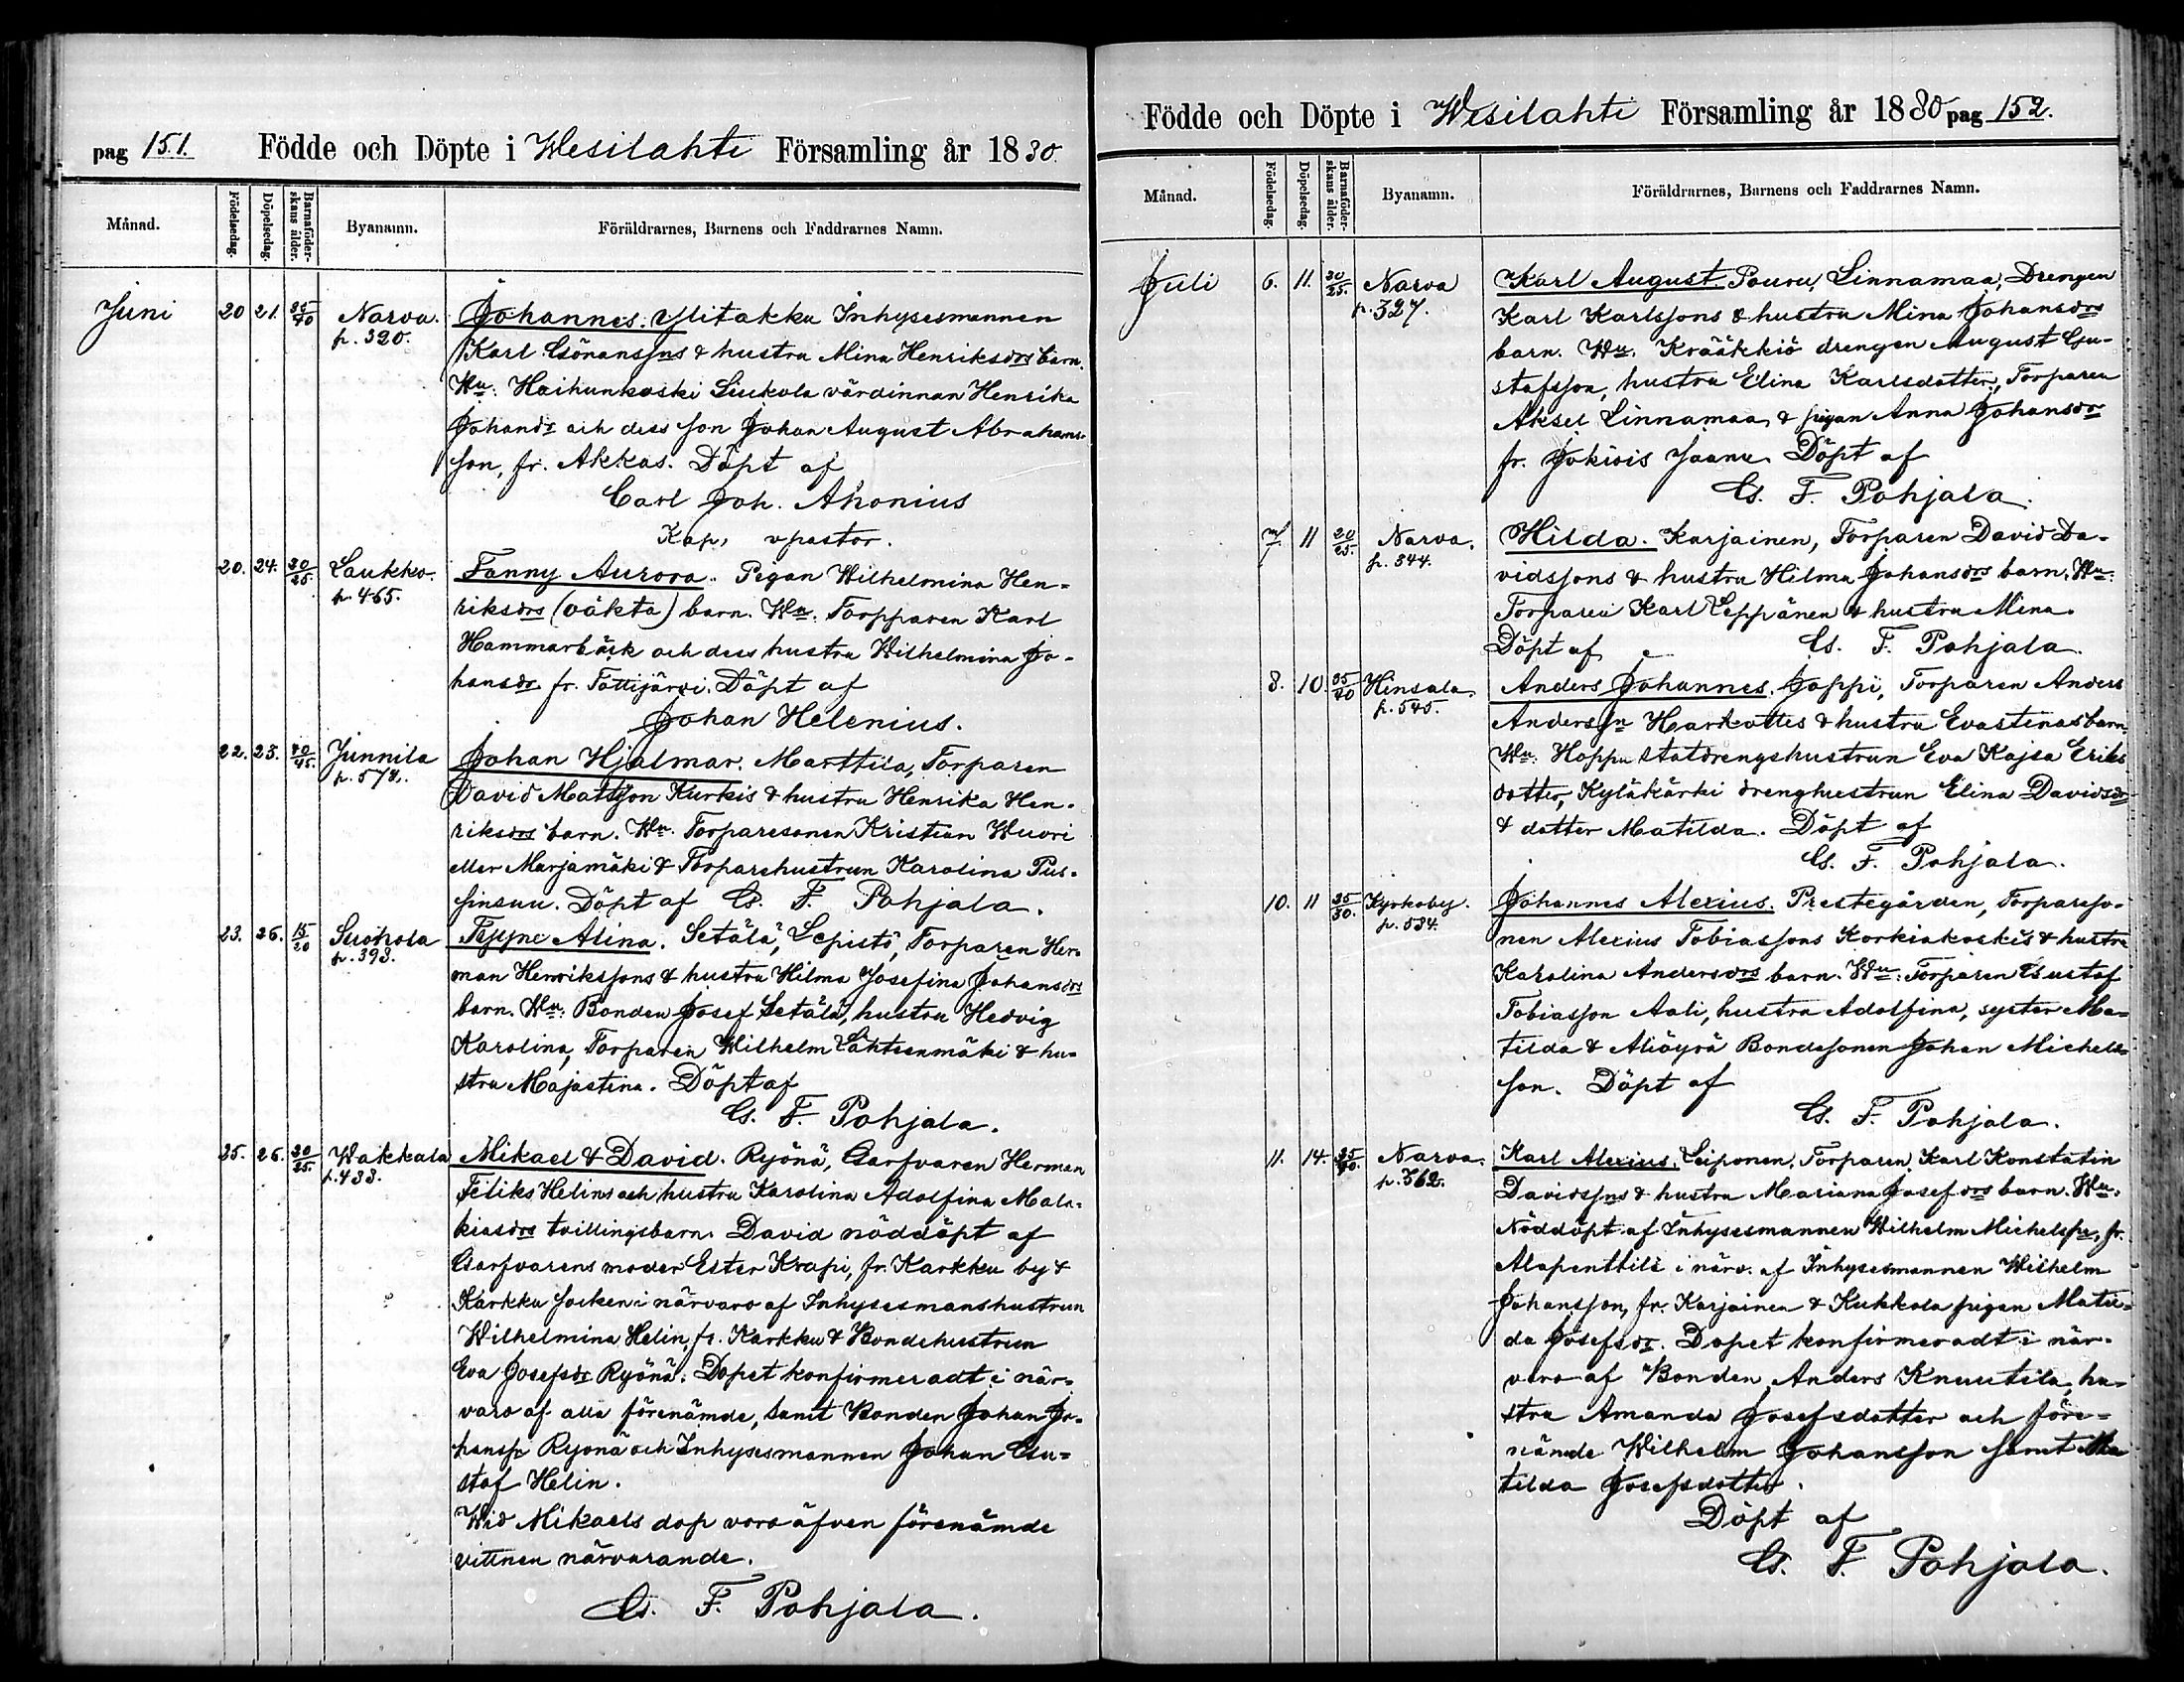 pag 151. Födde och Döpte i Wesilahti Församling år 1880.
Månad. Födelsedag. Döpelsedag. Barnaföderskans ålder. Byanamn. Föräldrarnes, Barnens och Faddrarnes Namn.
Juni 20 21. 35/40 Narva. Johannes. Ylitakku Inhysesmannen
p. 390. Karl Gönanssns & hustru Mina Henriksdrs barn.
Wn: Haihunkoski Liukola värdinnan Henrika
Johansdr och dess son Johan August Abrahams-
son, fr. Akkas. Döpt af
Carl Joh. Ahonius
Kap. vpastor.
20. 24. 20/25 Laukko. Fanny Aurora. Pigan Wilhelmina Hen-
p. 465. riksdrs (oäkta) barn. Wn: Torpparen Karl
Hammarbäck och dess hustru Wilhelmina Jo-
hansdr fr. Tottijärvi. Döpt af
Johan Helenius.
22. 23. 40/45. Junnila Johan Hjalmar. Marttila, Torparen
p. 574. David Mattsson Kurkis & hustru Henrika Hen-
riksdrs barn. Wn. Torparesonen Kristian Wuori
eller Marjamäki & Torparehustrun Karolina Pus-
sinsuu. Döpt af G. F. Pohjala.
23. 26. 15/20 Suohola Tyyne Alina. Setälä, Lepistö, Torparen Her-
p. 393. man Henrikssons & hustru Hilma Josefina Johansdrs
barn. Wn: Bonden Josef Setälä, hustru Hedvig
Karolina, Torparen Wilhelm Lähteenmäki & hu-
stru Majastina. Döpt af
G. F. Pohjala.
25. 26. 20/25. Wakkala Mikael & David. Ryönä, Garfvaren Herman
p. 433. Feliks Helins och hustru Karolina Adolfina Mala-
kiasdrs tvillingsbarn. David nöddöpt af
Garfvarens moder Ester Krapi, fr. Karkku by &
Karkku socken i närvaro af Inhysesmanshustrun
Wilhelmina Helin, fr. Karkku & Bondehustrun
Eva Josefsdr Ryönä. Dopet konfirmeradt i när-
varo af alla förenämde, samt Bonden Johan Jo-
hanssn Ryönä och Inhysesmannen Johan Gu-
staf Helin.
Wid Mikaels dop voro äfven förenämde
vittnen närvarande.
G. F. Pohjala.
Födde och Döpte i Wesilahti Församling år 1880 pag 152.
Månad. Födelsedag. Döpelsedag. Barnaföderskans ålder. Byanamn. Föräldrarnes, Barnens och Faddrarnes Namn.
Juli 6. 11. 20/25. Narva Karl August. Pouru, Linnamaa, Drengen
p. 327. Karl Karlssons & hustru Mina Johansdrs
barn. Wn. Krääkkiö drengen August Gu-
stafsson, hustru Elina Karlsdotter, Torparen
Aksel Linnamaa, & pigan Anna Johansdr
fr. Jokiois Jaanu. Döpt af
G. F. Pohjala.
11 20/25. Narva. Hilda. Karjainen, Torparen David Da-
p. 344. vidssons & hustru Hilma Johansdrs barn. Wn:
Torparen Karl Leppänen & hustru Mina.
Döpt af G. F. Pohjala.
8. 10. 35/40 Hinsala. Anders Johannes. Joppi, Torparen Anders
p. 545. Anderssn Harkottis & hustru Evastinas barn.
Wn: Hoppu statdrengshustrun Eva Kajsa Eriks
dotter, Kyläkärki drenghustrun Elina Davidsdr
& dotter Matilda. Döpt af
G. F. Pohjala.
10. 11 25/30. Kyrkoby. Johannes Alexius. Prestegården, Torpareso-
p. 584. nen Alexius Tobiassons Korkiakoskis & hustru
Karolina Andersdrs barn. Wn: Torparen Gustaf
Tobiasson Aali, hustru Adolfina, syster Ma-
tilda & Aliöyrä Bondesonen Johan Michels-
son. Döpt af
G. F. Pohjala.
11. 14. 35/40. Narva. Karl Alexius. Leiponen, Torparen Karl Konstatin
p. 362. Davidssns & hustru Mariana Josefsdrs barn. Wn.
Nöddöpt af Inhysesmannen Wilhelm Michelssn, fr.
Alapenttili i närv. af Inhysesmannen Wilhelm
Johansson, fr. Karjainen & Kukkola pigan Matil-
da Josefsdr. Dopet konfirmeradt i när-
varo af Bonden Anders Knuutila, hu-
stru Amanda Josefsdotter och före-
nämde Wilhelm Johansson samt Ma
tilda Josefsdotter.
Döpt af
G. F. Pohjala.